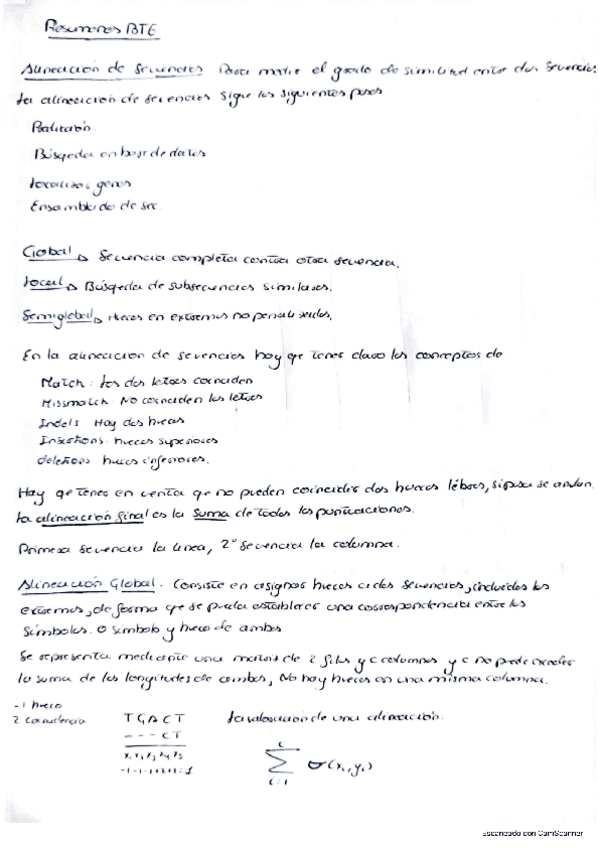 Resumenes BTE
Alineación de Secuencias Para medir el grado de similitud entre dos secuencias
La alineación de secuencias sigue los siguientes pasos
Búsqueda en base de datos
Localizar genes
Ensamblado de sec
Global Secuencia completa contra otra secuencia.
Local Búsqueda de subsecuencias similares.
Semiglobal Huecos en extremos no penalizados.
En la alineacion de secuencias hay que tener claro los conceptos de
Match: Los dos letras coinciden
Missmatch No coinciden las letras
Indels Hay dos huecos
Insertions huecos superiores
deletions huecos inferiores.
Hay qe tener en cuenta qe no pueden coincidir dos huecos
La alineación final es la suma de todas las puntuaciones.
Primera secuencia la linea, 2º secuencia la columna.
Alineación Global. Consiste en asignar huecos a las secuencias, incluidos los
extremos, de forma que se pueda establecer una correspondencia entre los
símbolos. O símbolo y hueco de ambos
Se representa mediante una matriz de 2 filas y c columnas y c no puede exceder
la suma de las longitudes de ambos, No hay huecos en una misma columna.
-1 hueco
2 coincidencia
T G A C T
- - - C T
La valoración de una alineación.
Escaneado con CamScanner